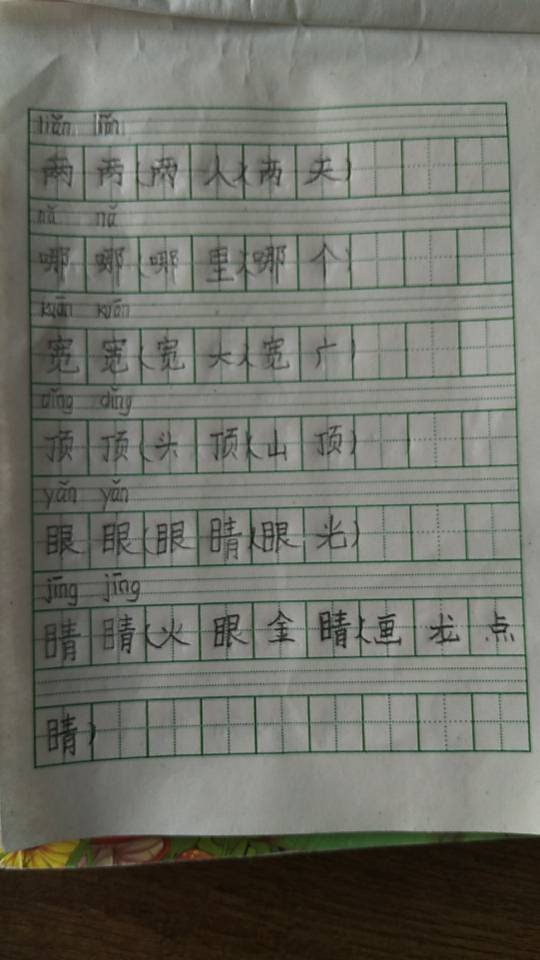 liǎng liǎng
两 两 (两 人)(两 天)
nǎ nǎ
哪 哪 (哪 里)(哪 个)
kuān kuān
宽 宽 (宽 大)(宽 广)
dǐng dǐng
顶 顶 (头 顶)(山 顶)
yǎn yǎn
眼 眼 (眼 睛)(眼 光)
jīng jīng
睛 睛 (火 眼 金 睛)(画 龙 点
睛)